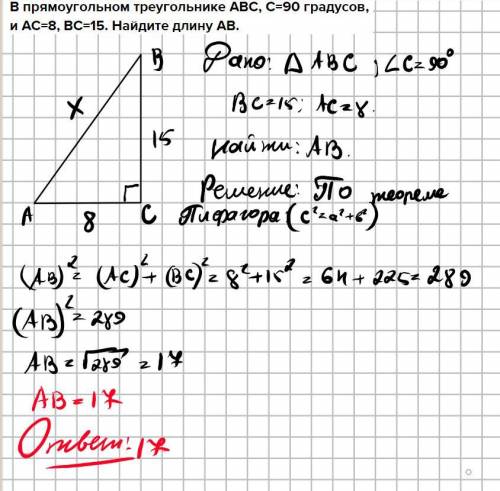 В прямоугольном треугольнике ABC, C=90 градусов,
и AC=8, BC=15. Найдите длину AB.
B
X
15
A
8
C
Дано: Δ ABC ; ∠C=90°
BC=15; AC=8.
Найти: AB.
Решение: По теореме
Пифагора (c²=a²+b²)
(AB)²= (AC)²+(BC)²=8²+15²=64+225=289
(AB)²=289
AB=√289=17
AB=17
Ответ: 17